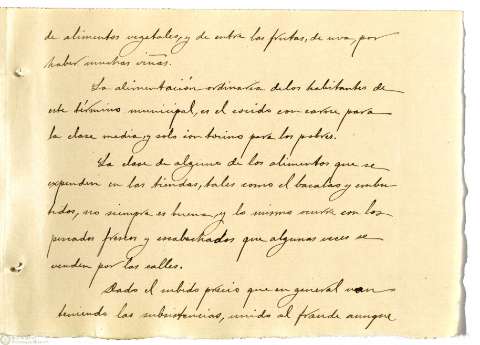 de alimentos vegetales, y de entre las frutas, de uva, por
haber muchas viñas.
La alimentación ordinaria de los habitantes de
este término municipal, es el cocido con carne para
la clase media, y solo con tocino para los pobres.
La clase de alguno de los alimentos que se
expenden en las tiendas, tales como el bacalao y embu-
tidos, no siempre es buena, y lo mismo ocurre con los
pescados frescos y escabechados que algunas veces se
venden por las calles.
Dado el subido precio que en general van
teniendo las subsistencias, unido al fraude aunque